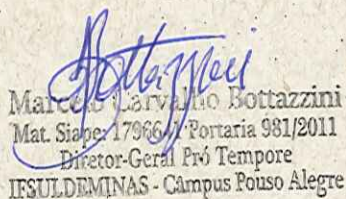 Bottazzini
Marcelo Carvalho Bottazzini
Mat. Siape: 1796641 Portaria 981/2011
Diretor-Geral Pró Tempore
IFSULDEMINAS - Câmpus Pouso Alegre